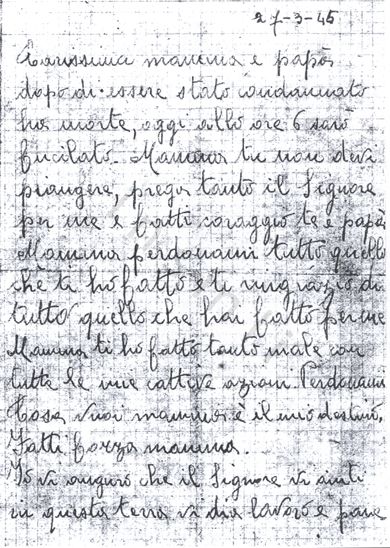 27-3-45
Carissima mamma e papà
dopo di essere stato condannato
ha morte, oggi allo ore 6 sarò
fucilato. Mamma tu non devi
piangere, prega tanto il Signore
per me e fatti coraggio te e papà
Mamma perdonami tutto quello
che ti ho fatto e ti ringrazio di
tutto quello che hai fatto per me
Mamma ti ho fatto tanto male con
tutte le mie cattive azioni Perdonami
Cosa vuoi mamma è il mio destino.
Fatti forza mamma.
Io vi auguro che il Signore vi aiuti
in questa terra vi dia lavoro e pane